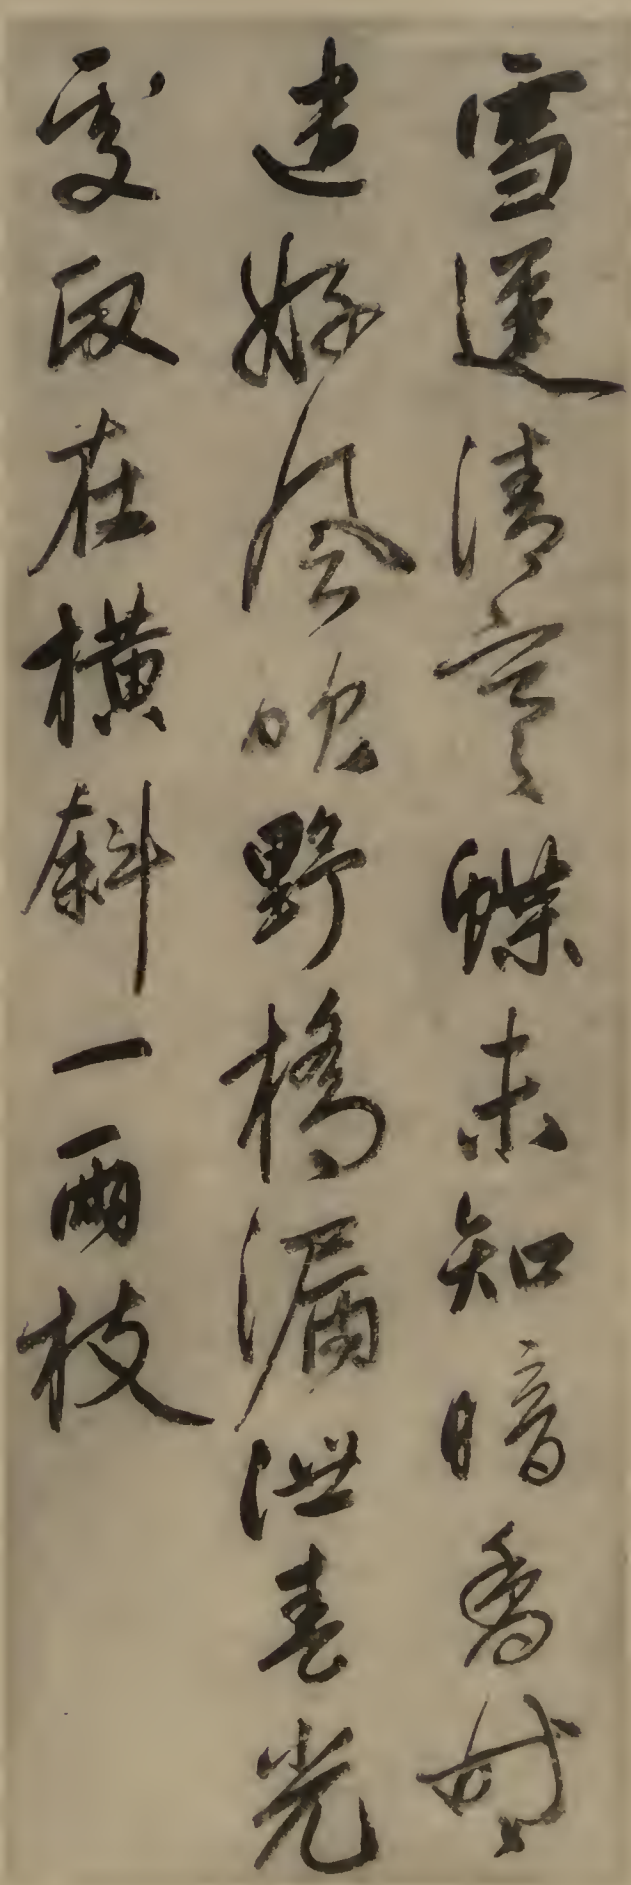 雪逕清寒蝶未知暗香時
遣好風吹野橋漏泄春光
處政在橫斜一兩枝